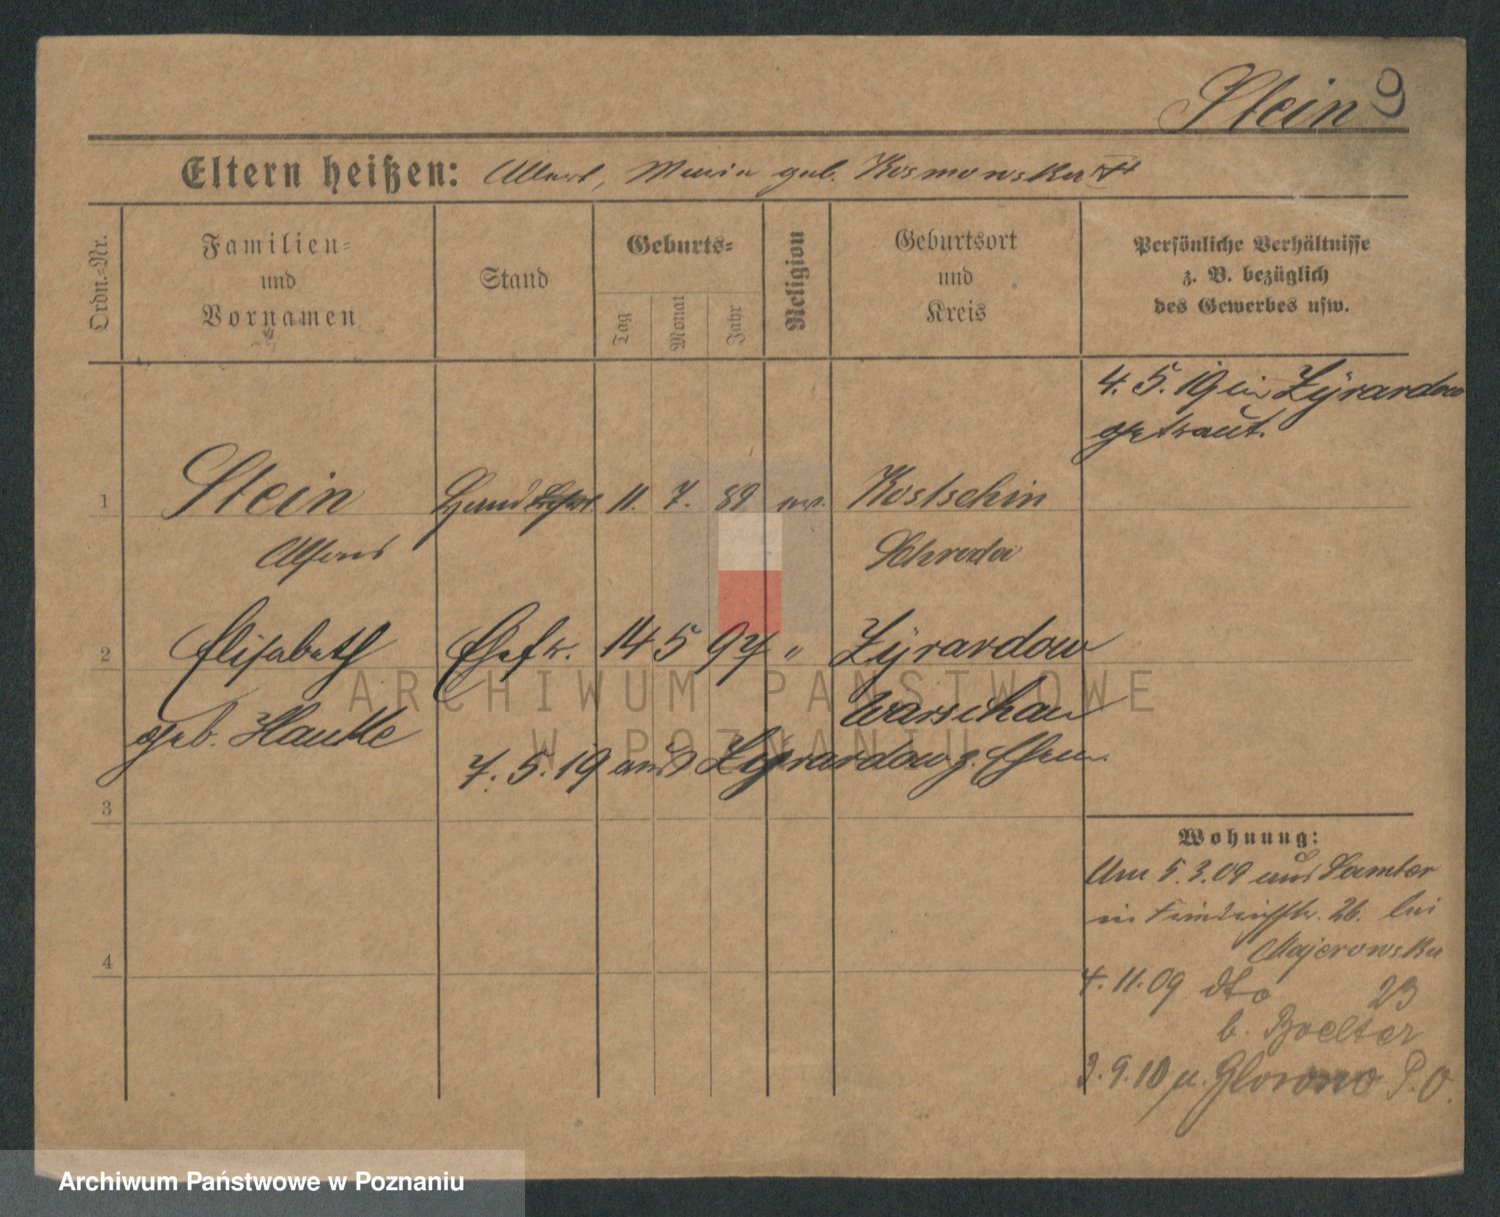 Stein 9
Eltern heißen: Albert, Maria geb. Kosmowska
Ordn.=Nr.
Familien=
und
Vornamen
Stand
Geburts=
Tag
Monat
Jahr
Religion
Geburtsort
und
Kreis
Persönliche Verhältnisse
z. B. bezüglich
des Gewerbes usw.
4. 5. 19 in Zÿrardow
getraut.
1 Stein 11. 7. 89 Kostschin
Alfons Schroda
2 Elisabeth Ehefr. 14 5 97 " Zÿrardow
geb. Hauke Warschau
7. 5. 19 aus Zyrardow z. Ehem.
3
4
Wohnung:
Am 5.3.09 aus Samter
in Friedrichstr. 26. bei
Majerowska
4.11.09 dto 23
b. Boelter
3.9.10 n. Glowno P.O.
ARCHIWUM PAŃSTWOWE
W POZNANIU
Archiwum Państwowe w Poznaniu